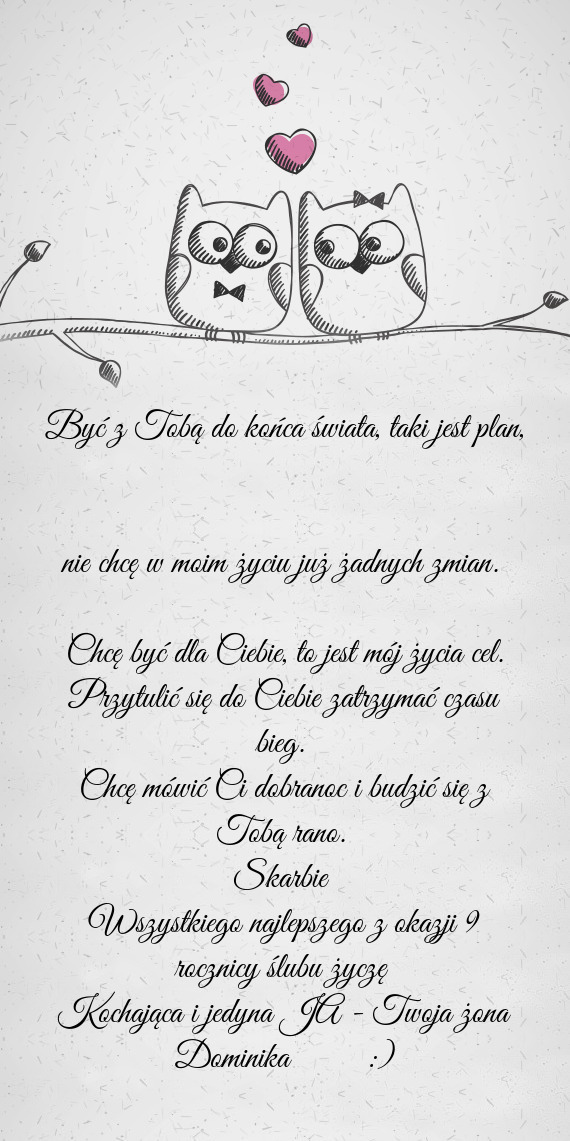 Być z Tobą do końca świata, taki jest plan,
nie chcę w moim życiu już żadnych zmian.
Chcę być dla Ciebie, to jest mój życia cel.
Przytulić się do Ciebie zatrzymać czasu
bieg.
Chcę mówić Ci dobranoc i budzić się z
Tobą rano.
Skarbie
Wszystkiego najlepszego z okazji 9
rocznicy ślubu życzę
Kochająca i jedyna JA - Twoja żona
Dominika :)